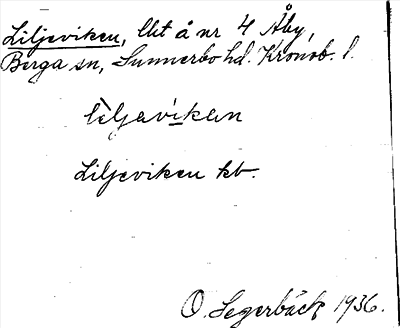 Liljeviken, lht å nr 4 Åby,
Berga sn, Sunnerbo hd. Kronob. l.
lìljavíkan
Liljeviken kb.
O. Segerbäck 1936.